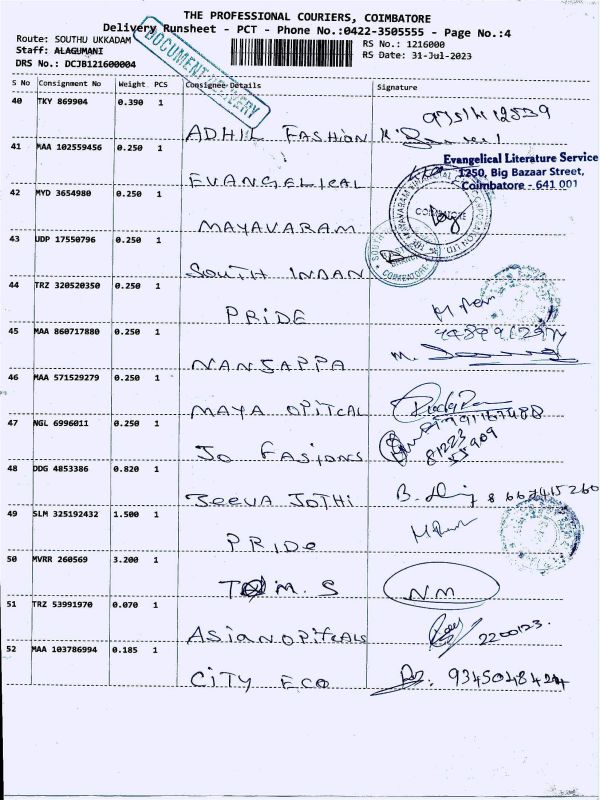 THE PROFESSIONAL COURIERS, COIMBATORE
Delivery Runsheet - PCT - Phone No.:0422-3505555 - Page No.:4
Route: SOUTHU UKKADAM
RS No.: 1216000
Staff: ALAGUMANI
RS Date: 31-Jul-2023
DRS No.: DCJB121600004
DOCUMENT DELIVERY
S No Consignment No Weight PCS Consignee Details Signature
40 TKY 869904 0.390 1
ADHIL FASHION
41 MAA 102559456 0.250 1
Evangelical Literature Service
1250, Big Bazaar Street,
Coimbatore - 641 001
EVANGELICAL
42 MYD 3654980 0.250 1
COIMBATORE
MAYAVARAM
43 UDP 17550796 0.250 1
COIMBATORE
SOUTH INDAN
44 TRZ 320520350 0.250 1
PRIDE
45 MAA 860717880 0.250 1
NANJAPPA
46 MAA 571529279 0.250 1
MAYA OPITCAL
47 NGL 6996011 0.250 1
81223
JO FASIONS
48 DDG 4853386 0.820 1
JEEVA JOTHI
49 SLM 325192432 1.500 1
PRIDE
50 MVRR 260569 3.200 1
M. S NM
51 TRZ 53991970 0.070 1
ASIAN OPITCALS 2200123.
52 MAA 103786994 0.185 1
CITY ECO